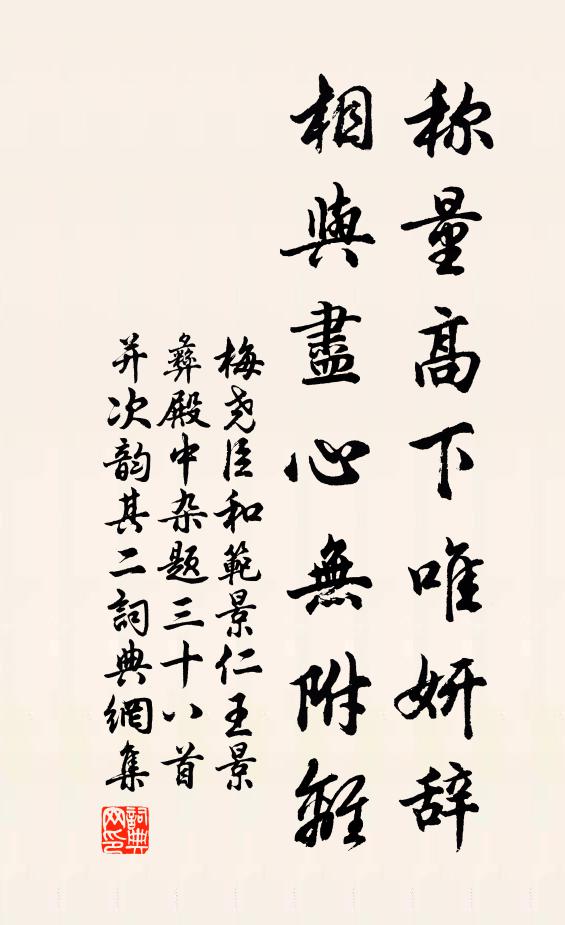 称量高下唯妍辞
相與盡心無附離
梅尧臣和範景仁王景
彝殿中杂题三十八首
并次韵其二詞典網集
詞典
网印